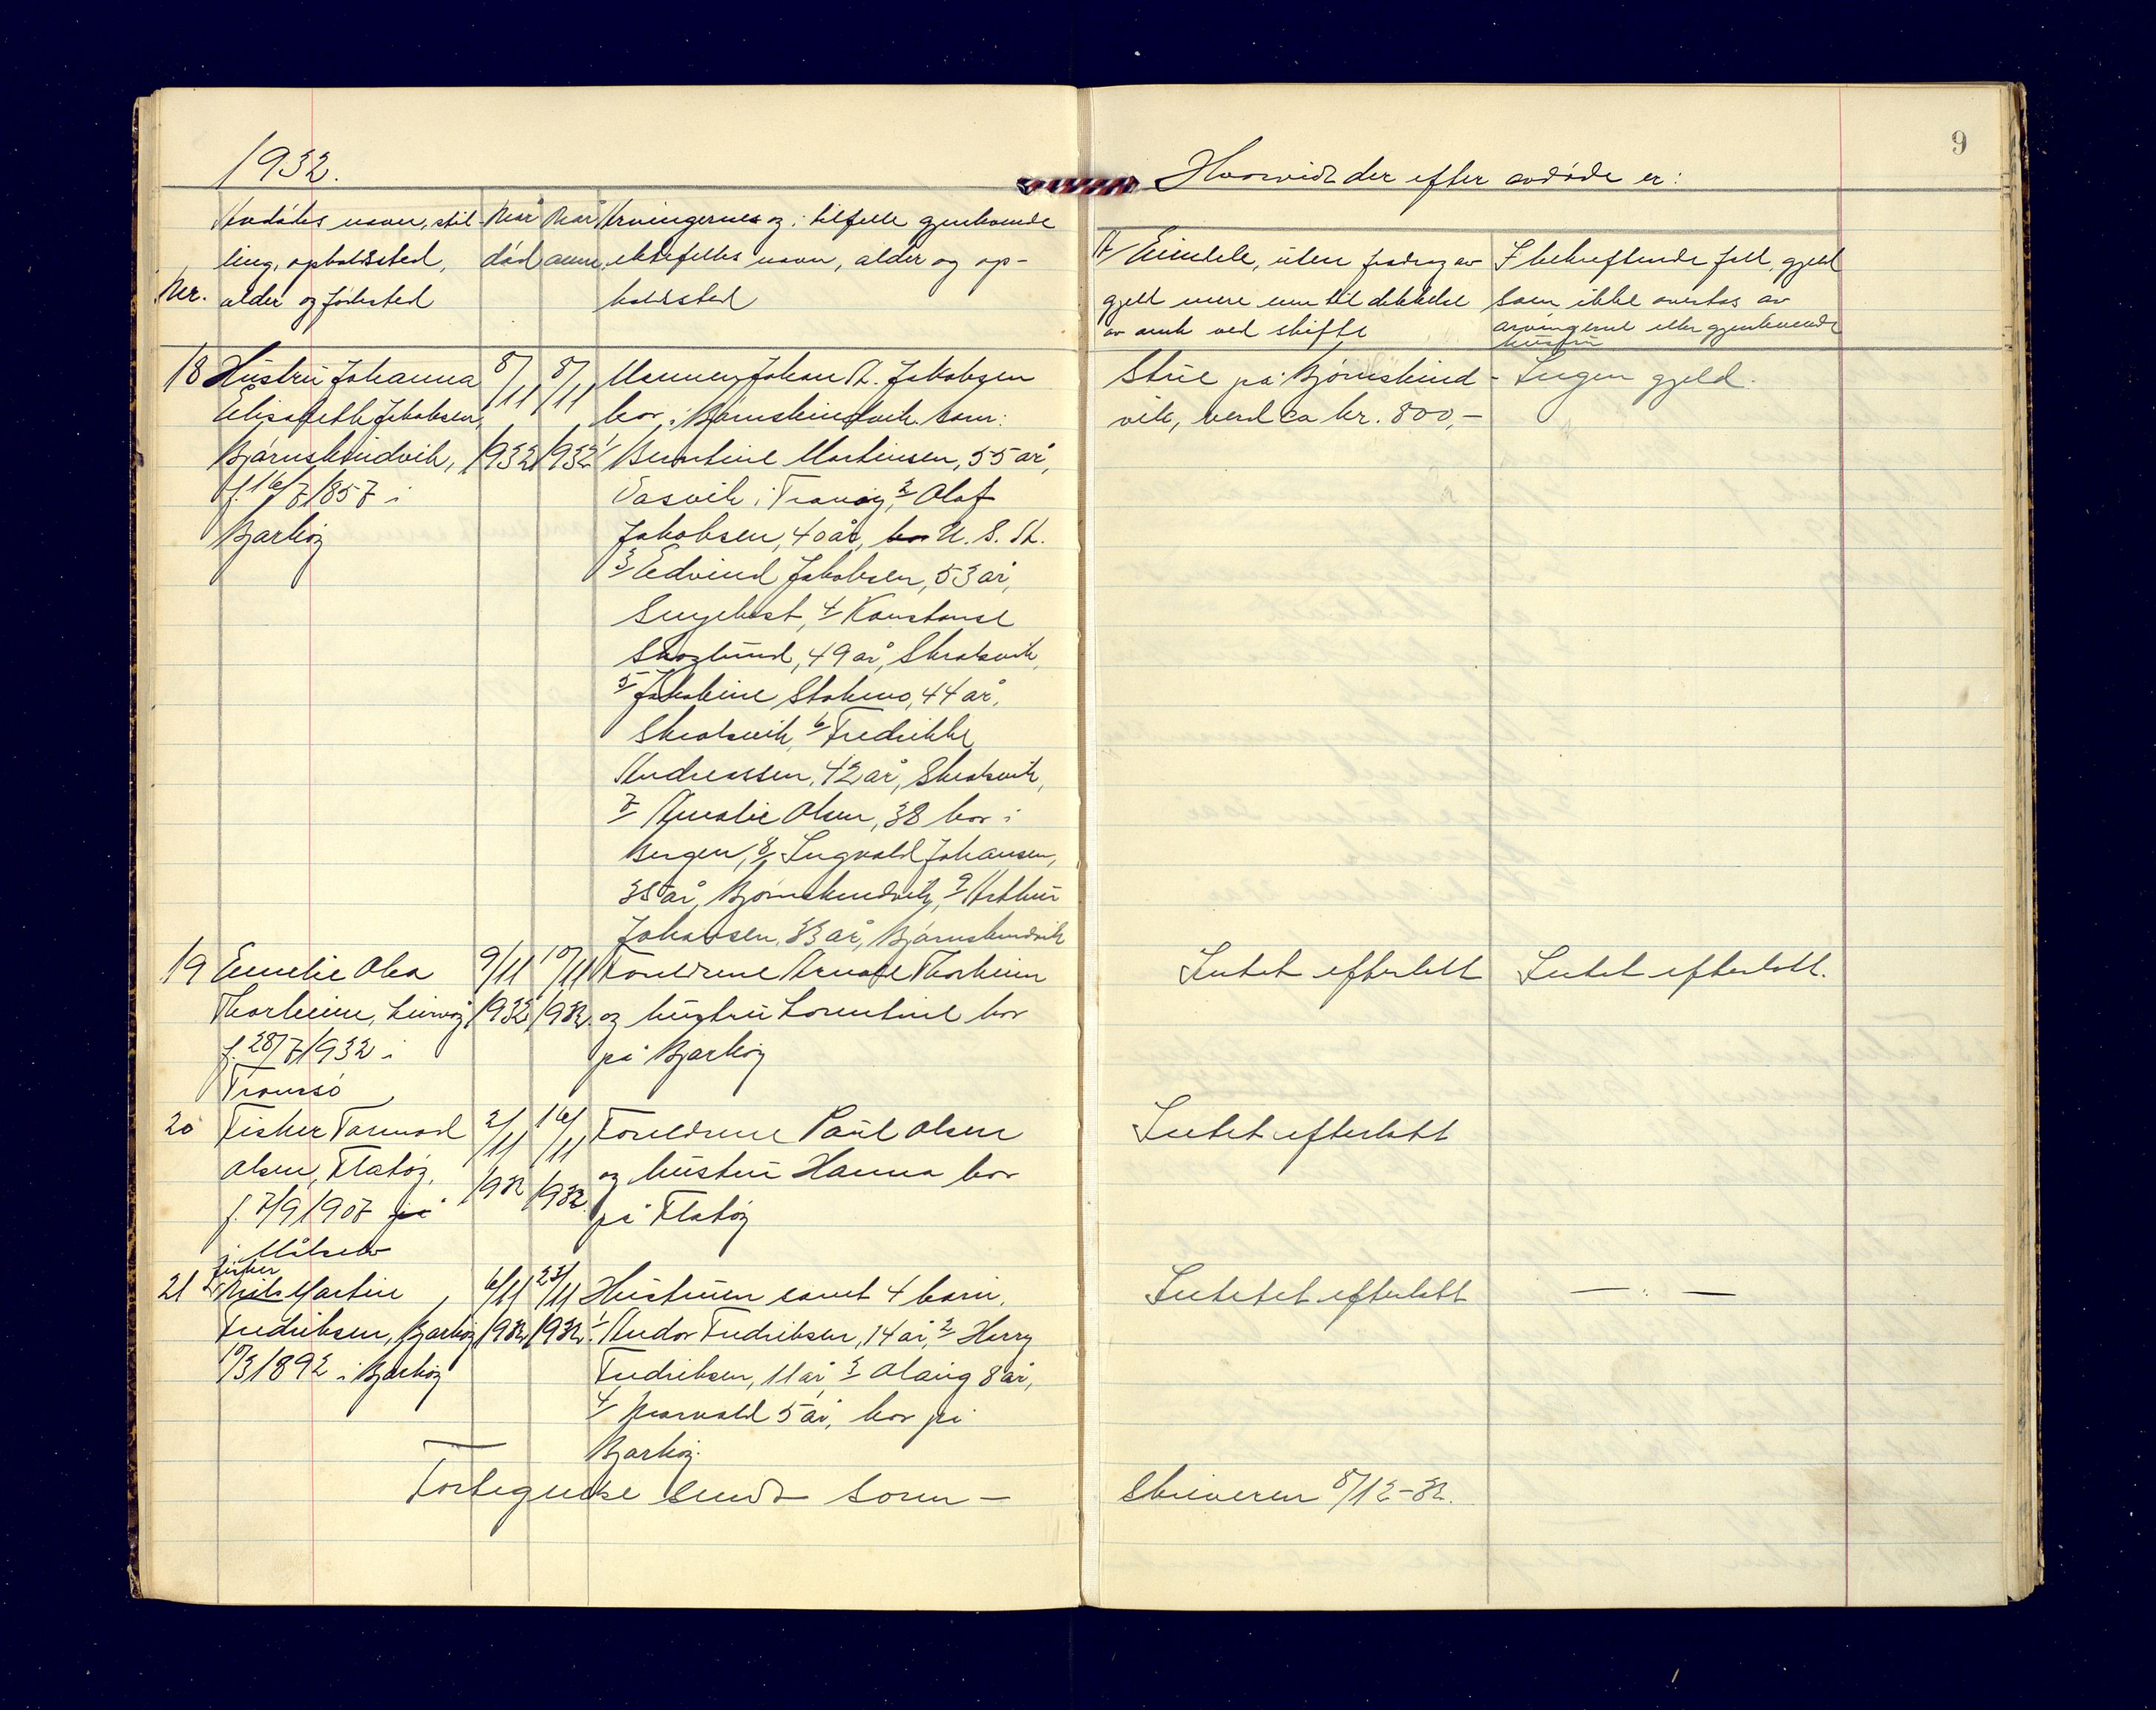 1932.
Avdødes navn, stil-
ling, opholdssted,
Nr. alder og fødested
Når
død
Når
anm.
Arvingernes og i tilfelle gjenlevende
ektefelles navn, alder og op-
holdssted
18 Hustru Johanna
Elisabeth Jakobsen,
Bjørnskindvik,
f. 16/7 1857 i
Bjarkøy
8/11
1932
8/11
1932
Mannen Johan A. Jakobsen
bor i Bjørnskindvik. Barn:
1/ Berntine Martinsen, 55 år,
Vasvik i Tranøy, 2/ Olaf
Jakobsen, 40 år, bor U. S. A.
3/ Edvind Jakobsen, 53 år,
4/ Konstanse
Skoglund, 49 år, Skrolsvik,
5/ Jakobine Stokmo, 44 år,
Skrolsvik, 6/ Fredrikke
Andreassen, 42 år, Skrolsvik,
7/ Amalie Olsen, 38 bor i
Bergen, 8/ Ingvald Johansen,
35 år, Bjørnskindvik, 9/ Arthur
Johansen, 33 år, Bjørnskindvik
19 Emelie Olea
Thorheim, Leirvåg
f. 28/7 1932 i
Tromsø
9/11
1932
10/11
1932.
Foreldrene Arnolf Thorheim
og hustru Lorentine bor
på Bjarkøy
20 Fisker Tormod
Olsen, Flatøy,
f. 7/9 1907 på
i Målselv
2/11
1932
16/11
1932.
Foreldrene Paul Olsen
og hustru Hanna bor
på Flatøy
fisker
21 Nils Martin
Fredriksen, Bjarkøy
10/3 1892 i Bjarkøy
6/11
1932
23/11
1932.
Hustruen samt 4 barn.
1/ Andor Fredriksen, 14 år, 2/ Harry
Fredriksen, 11 år 3/ Olaug 8 år,
4/ Norvald 5 år, bor på
Bjarkøy.
Fortegnelse sendt Soren-
9
Hvorvidt der efter avdøde er:
A/ Eiendele, uten fradrag av
gjeld mere enn til dekkelse
av omk ved skifte
I bekreftende fall, gjeld
som ikke overtas av
arvingerne eller gjenlevende
hustru
Stue på Bjørnskind-
vik, verd ca kr. 800,-
Ingen gjeld.
Intet efterlatt
Intet efterlatt.
Intet efterlatt
Intet efterlatt
— : —
skriveren 8/12-32.